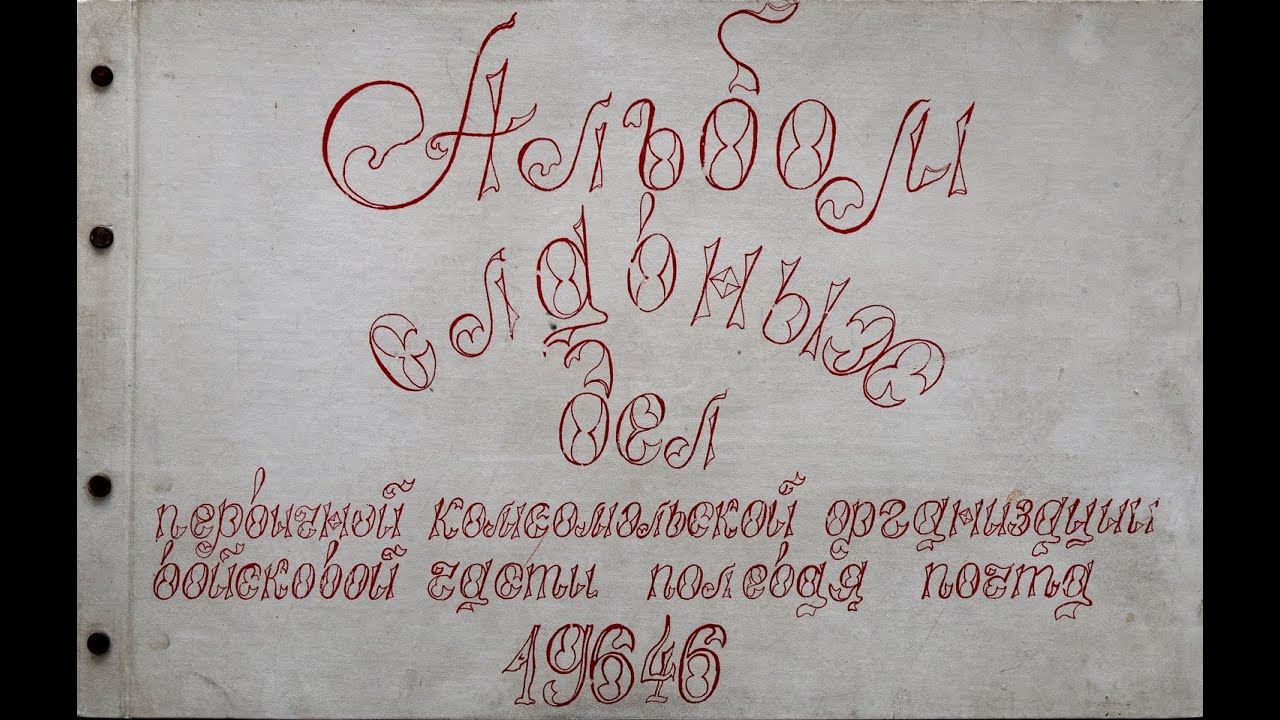 Альбом
славных
дел
первичной комсомольской организации
войсковой части полевая почта
19646